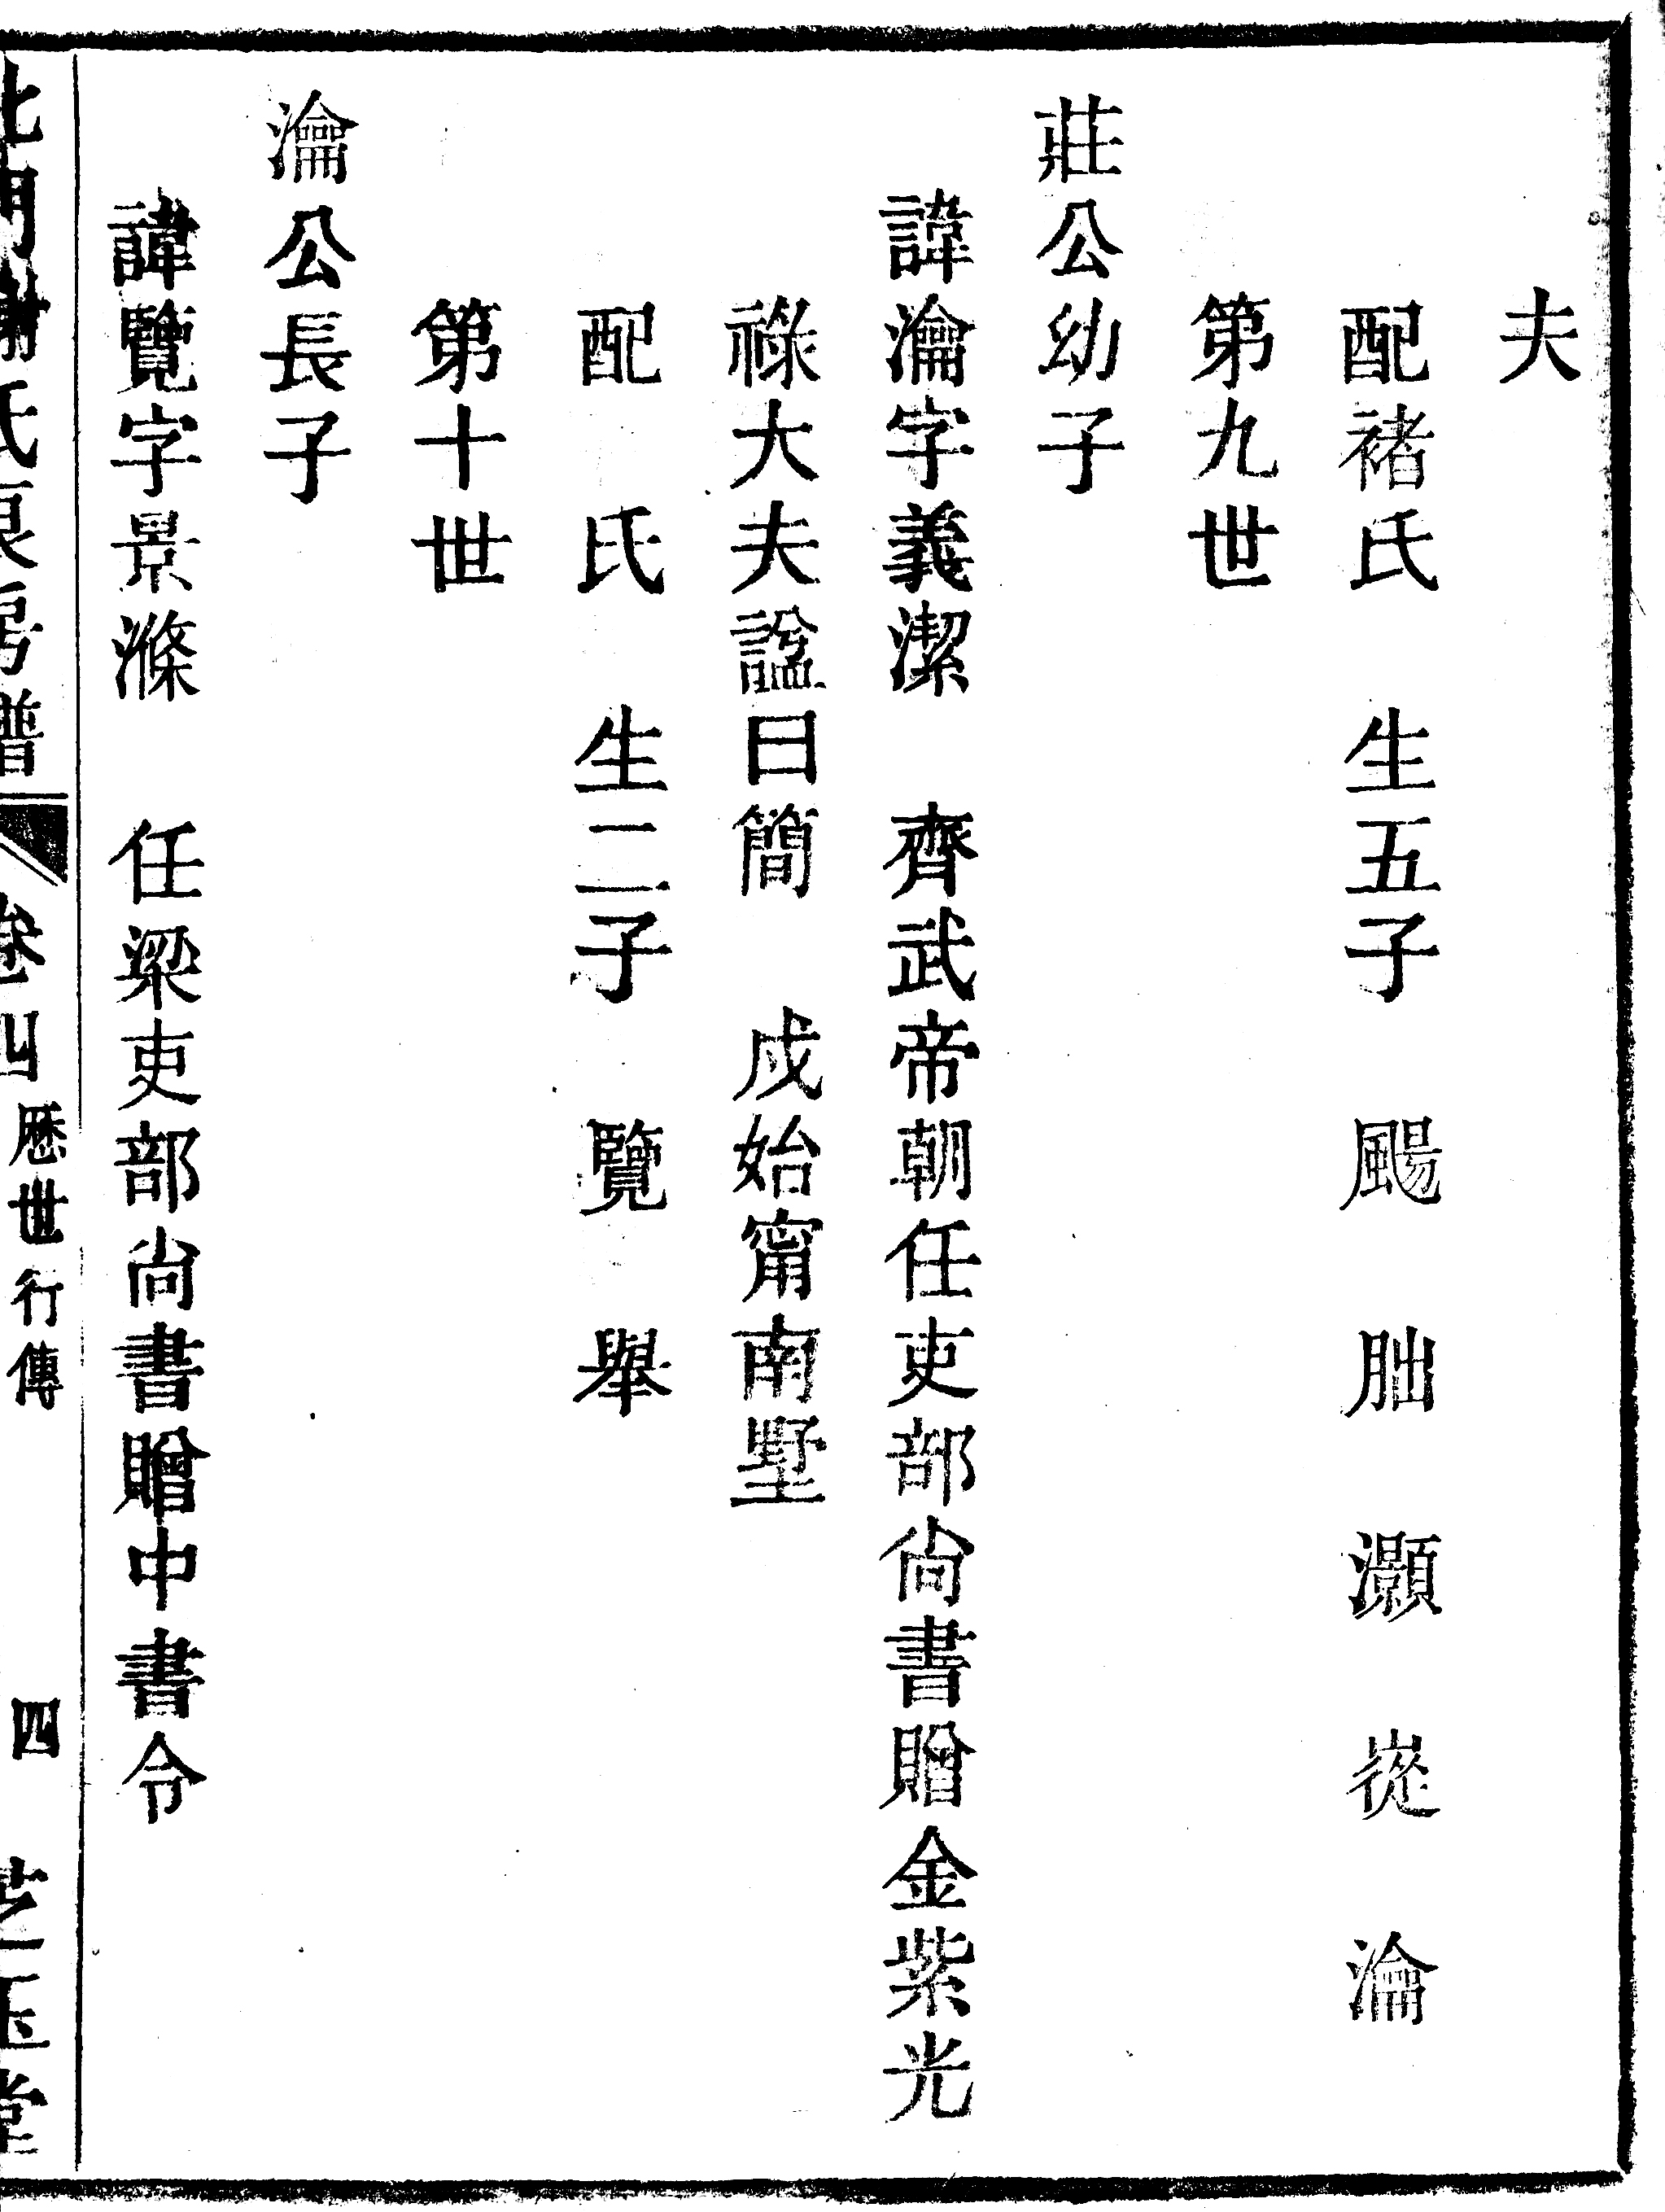 夫
配褚氏　生五子　颺　朏　灝　嵸　瀹
第九世
莊公幼子
諱瀹字義潔　齊武帝朝任吏部尚書贈金紫光
祿大夫諡曰簡　戍始甯南墅
配　氏　生二子　覽　舉
第十世
瀹公長子
諱覽字景滌　任梁吏部尚書贈中書令
北門謝氏良房譜　卷四　歷世行傳　四　芝玉堂